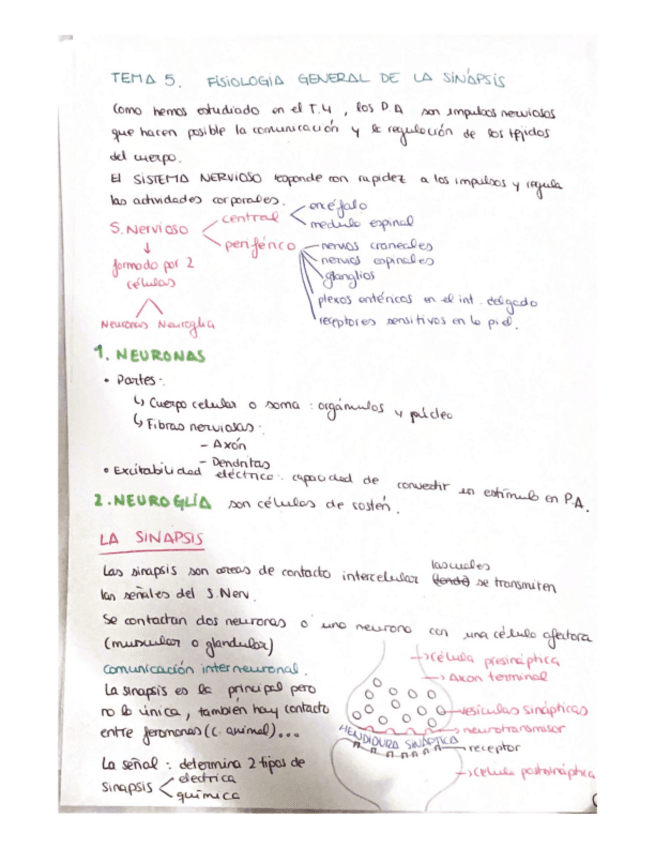 TEMA 5. FISIOLOGÍA GENERAL DE LA SINÁPSIS
Como hemos estudiado en el T.4, los P.A son impulsos nerviosos
que hacen posible la comunicación y la regulación de los tejidos
del cuerpo.
El SISTEMA NERVIOSO responde con rapidez a los impulsos y regula
las actividades corporales.
S. Nervioso
central
encéfalo
medula espinal
periférico
nervios craneales
nervios espinales
glanglios
plexos entéricos en el int. delgado
receptores sensitivos en la piel.
↓
formado por 2
células
Neuronas Neuroglia
1. NEURONAS
• Partes:
↳ Cuerpo celular o soma: orgánulos y núcleo
↳ Fibras nerviosas:
- Axón
- Dendritas
• Excitabilidad eléctrica: capacidad de convertir un estímulo en P.A.
2. NEUROGLÍA son células de sostén.
LA SINAPSIS
Las sinapsis son areas de contacto intercelular las cuales
(donde) se transmiten
las señales del S.Nerv.
Se contactan dos neuronas o una neurona con una célula efectora
(muscular o glandular)
comunicación interneuronal.
La sinapsis es la principal pero
no la única, también hay contacto
entre feromonas (c. animal)...
La señal: determina 2 tipos de
sinapsis
electrica
química
→ célula presináptica
→ Axon terminal
vesículas sinápticas
neurotransmisor
HENDIDURA SINÁPTICA
receptor
→ célula postsináptica